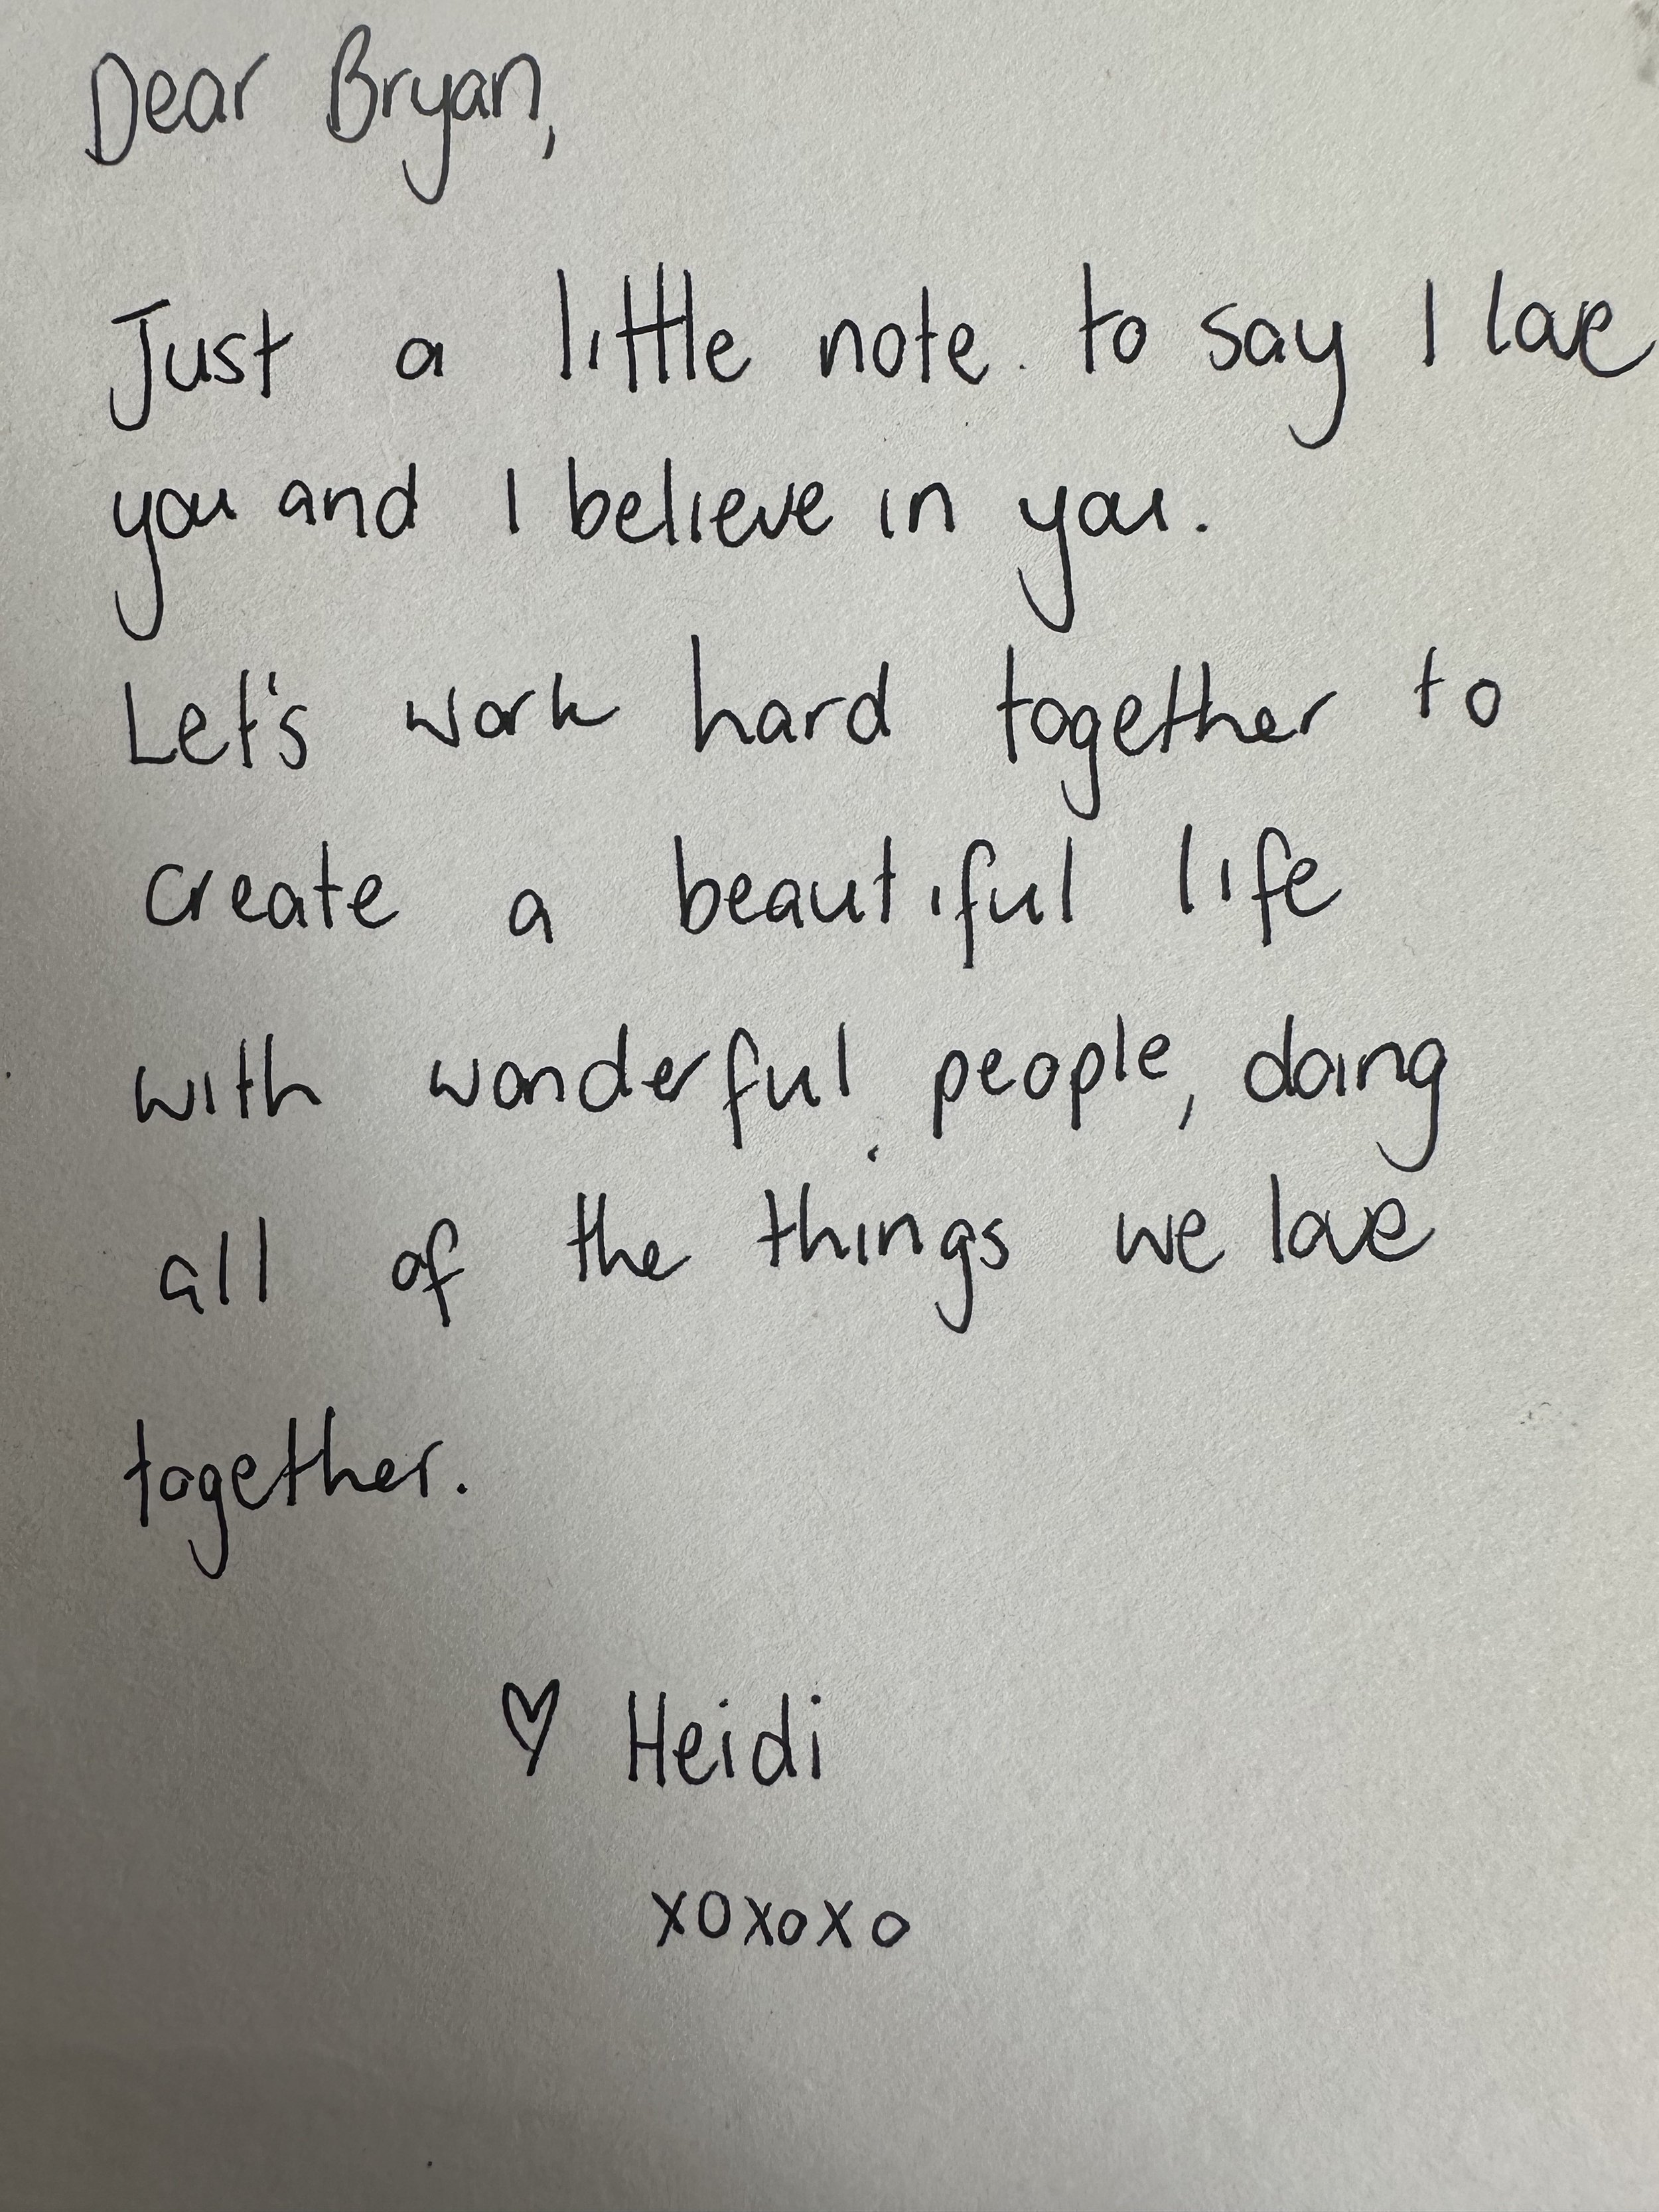 Dear Bryan,
Just a little note to say I love
you and I believe in you.
Let's work hard together to
create a beautiful life
with wonderful people, doing
all of the things we love
together.
♡ Heidi
xoxoxo